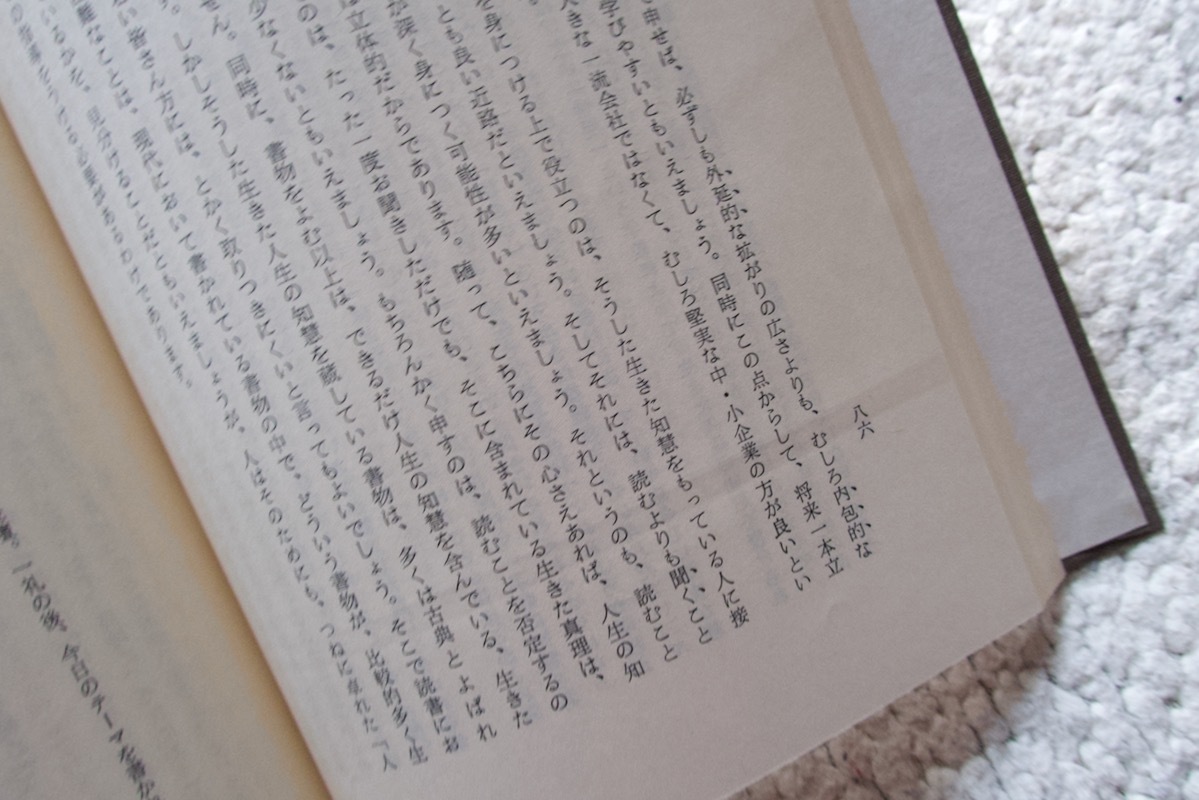 八六
申せば、必ずしも外延的な拡がりの広さよりも、むしろ内包的な
学びやすいともいえましょう。同時にこの点からして、将来一本立
大きな一流会社ではなくて、むしろ堅実な中・小企業の方が良いとい
を身につける上で役立つのは、そうした生きた知慧をもっている人に接
とも良い近路だといえましょう。そしてそれには、読むよりも聞くこと
が深く身につく可能性が多いといえましょう。それというのも、読むこと
は立体的だからであります。随って、こちらにその心さえあれば、人生の知
のは、たった一度お聞きしただけでも、そこに含まれている生きた真理は、
少なくないともいえましょう。もちろんかく申すのは、読むことを否定するの
せん。同時に、書物をよむ以上は、できるだけ人生の知慧を含んでいる、生きた
す。しかしそうした生きた人生の知慧を蔵している書物は、多くは古典とよばれ
い皆さん方には、とかく取りつきにくいと言ってもよいでしょう。そこで読書にお
難なことは、現代において書かれている書物の中で、どういう書物が、比較的多く生
いるかを、見分けることだともいえましょうが、人はそのためにも、つねに卓れた「人
の指導をうける必要があるわけであります。
一礼の後、今日のテーマを書か